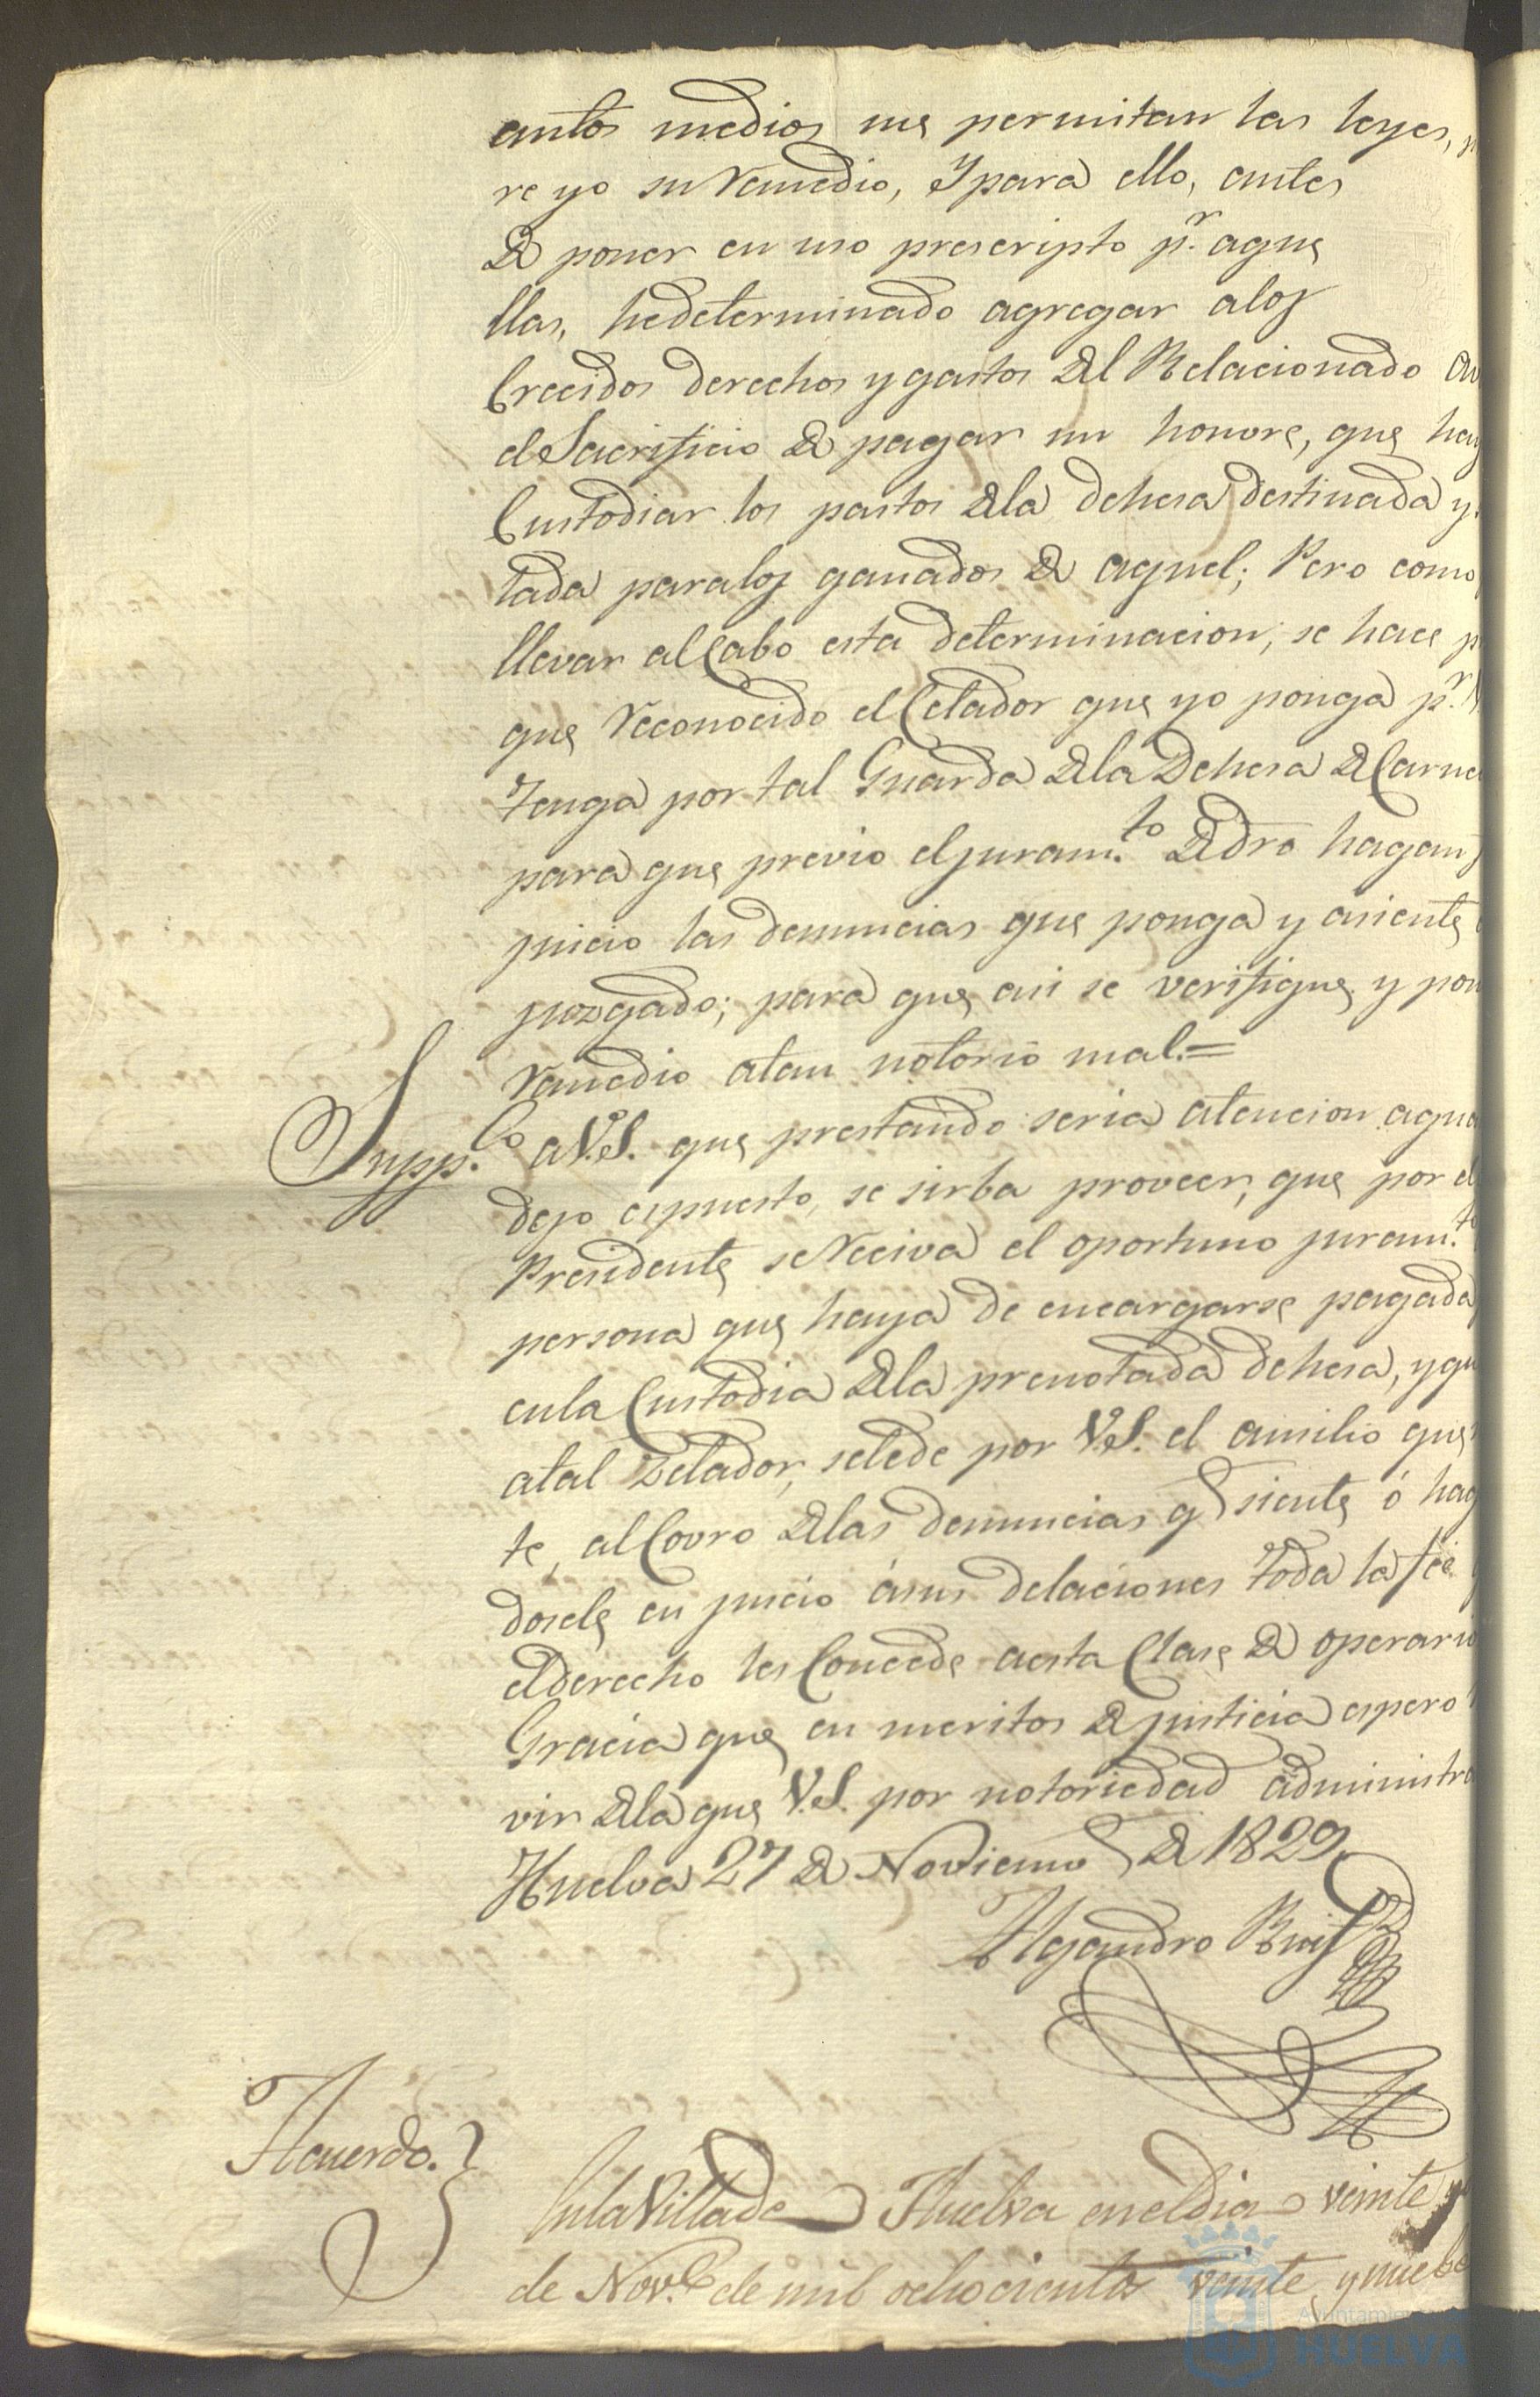 antos medios me permitan las leyes,
re yo su remedio, y para ello, antes
de poner en uso prescripto p.r aque
llas, he determinado agregar alos
Crecidos derechos y gastos del Relacionado
el Sacrificio de pagar un honvre, que hay
Custodiar los pastos dela dehesa destinada y
tada paralos ganados de aquel; Pero como
llevar al Cabo esta determinacion; se hace
que reconocido el Celador que yo ponga p.r
Tenga por tal Guarda dela Dehesa de Carne
para que previo el juram.to de dro hagan
juicio las denuncias que ponga y asiente
juzgado; para que asi se verifique y pon
remedio atan notorio mal.=
Supp.co a V.S. que prestando seria atencion aqua
dejo espuesto, se sirba proveer, que por el
Presidente se reciva el oportuno juram.to
persona que haya de encargarse pagada
enla Custodia dela prenotada dehesa, y qu
atal Zelador, sele de por V.S. el ausilio que
te, al Covro delas denuncias q.e siente ó hag
dosele en juicio ásus delaciones toda la fée
el derecho les Concede aesta Clase de operario
Gracia que en meritos de justicia espero
vir dela que V.S. por notoriedad administra
Huelva 27 de Noviemb.e de 1829.
Alejandro Ruiz
Acuerdo.
En la Villa de Huelva en el dia veinte y
de Nov.e de mil ochocientos veinte y nuebe
Ayuntamiento
HUELVA